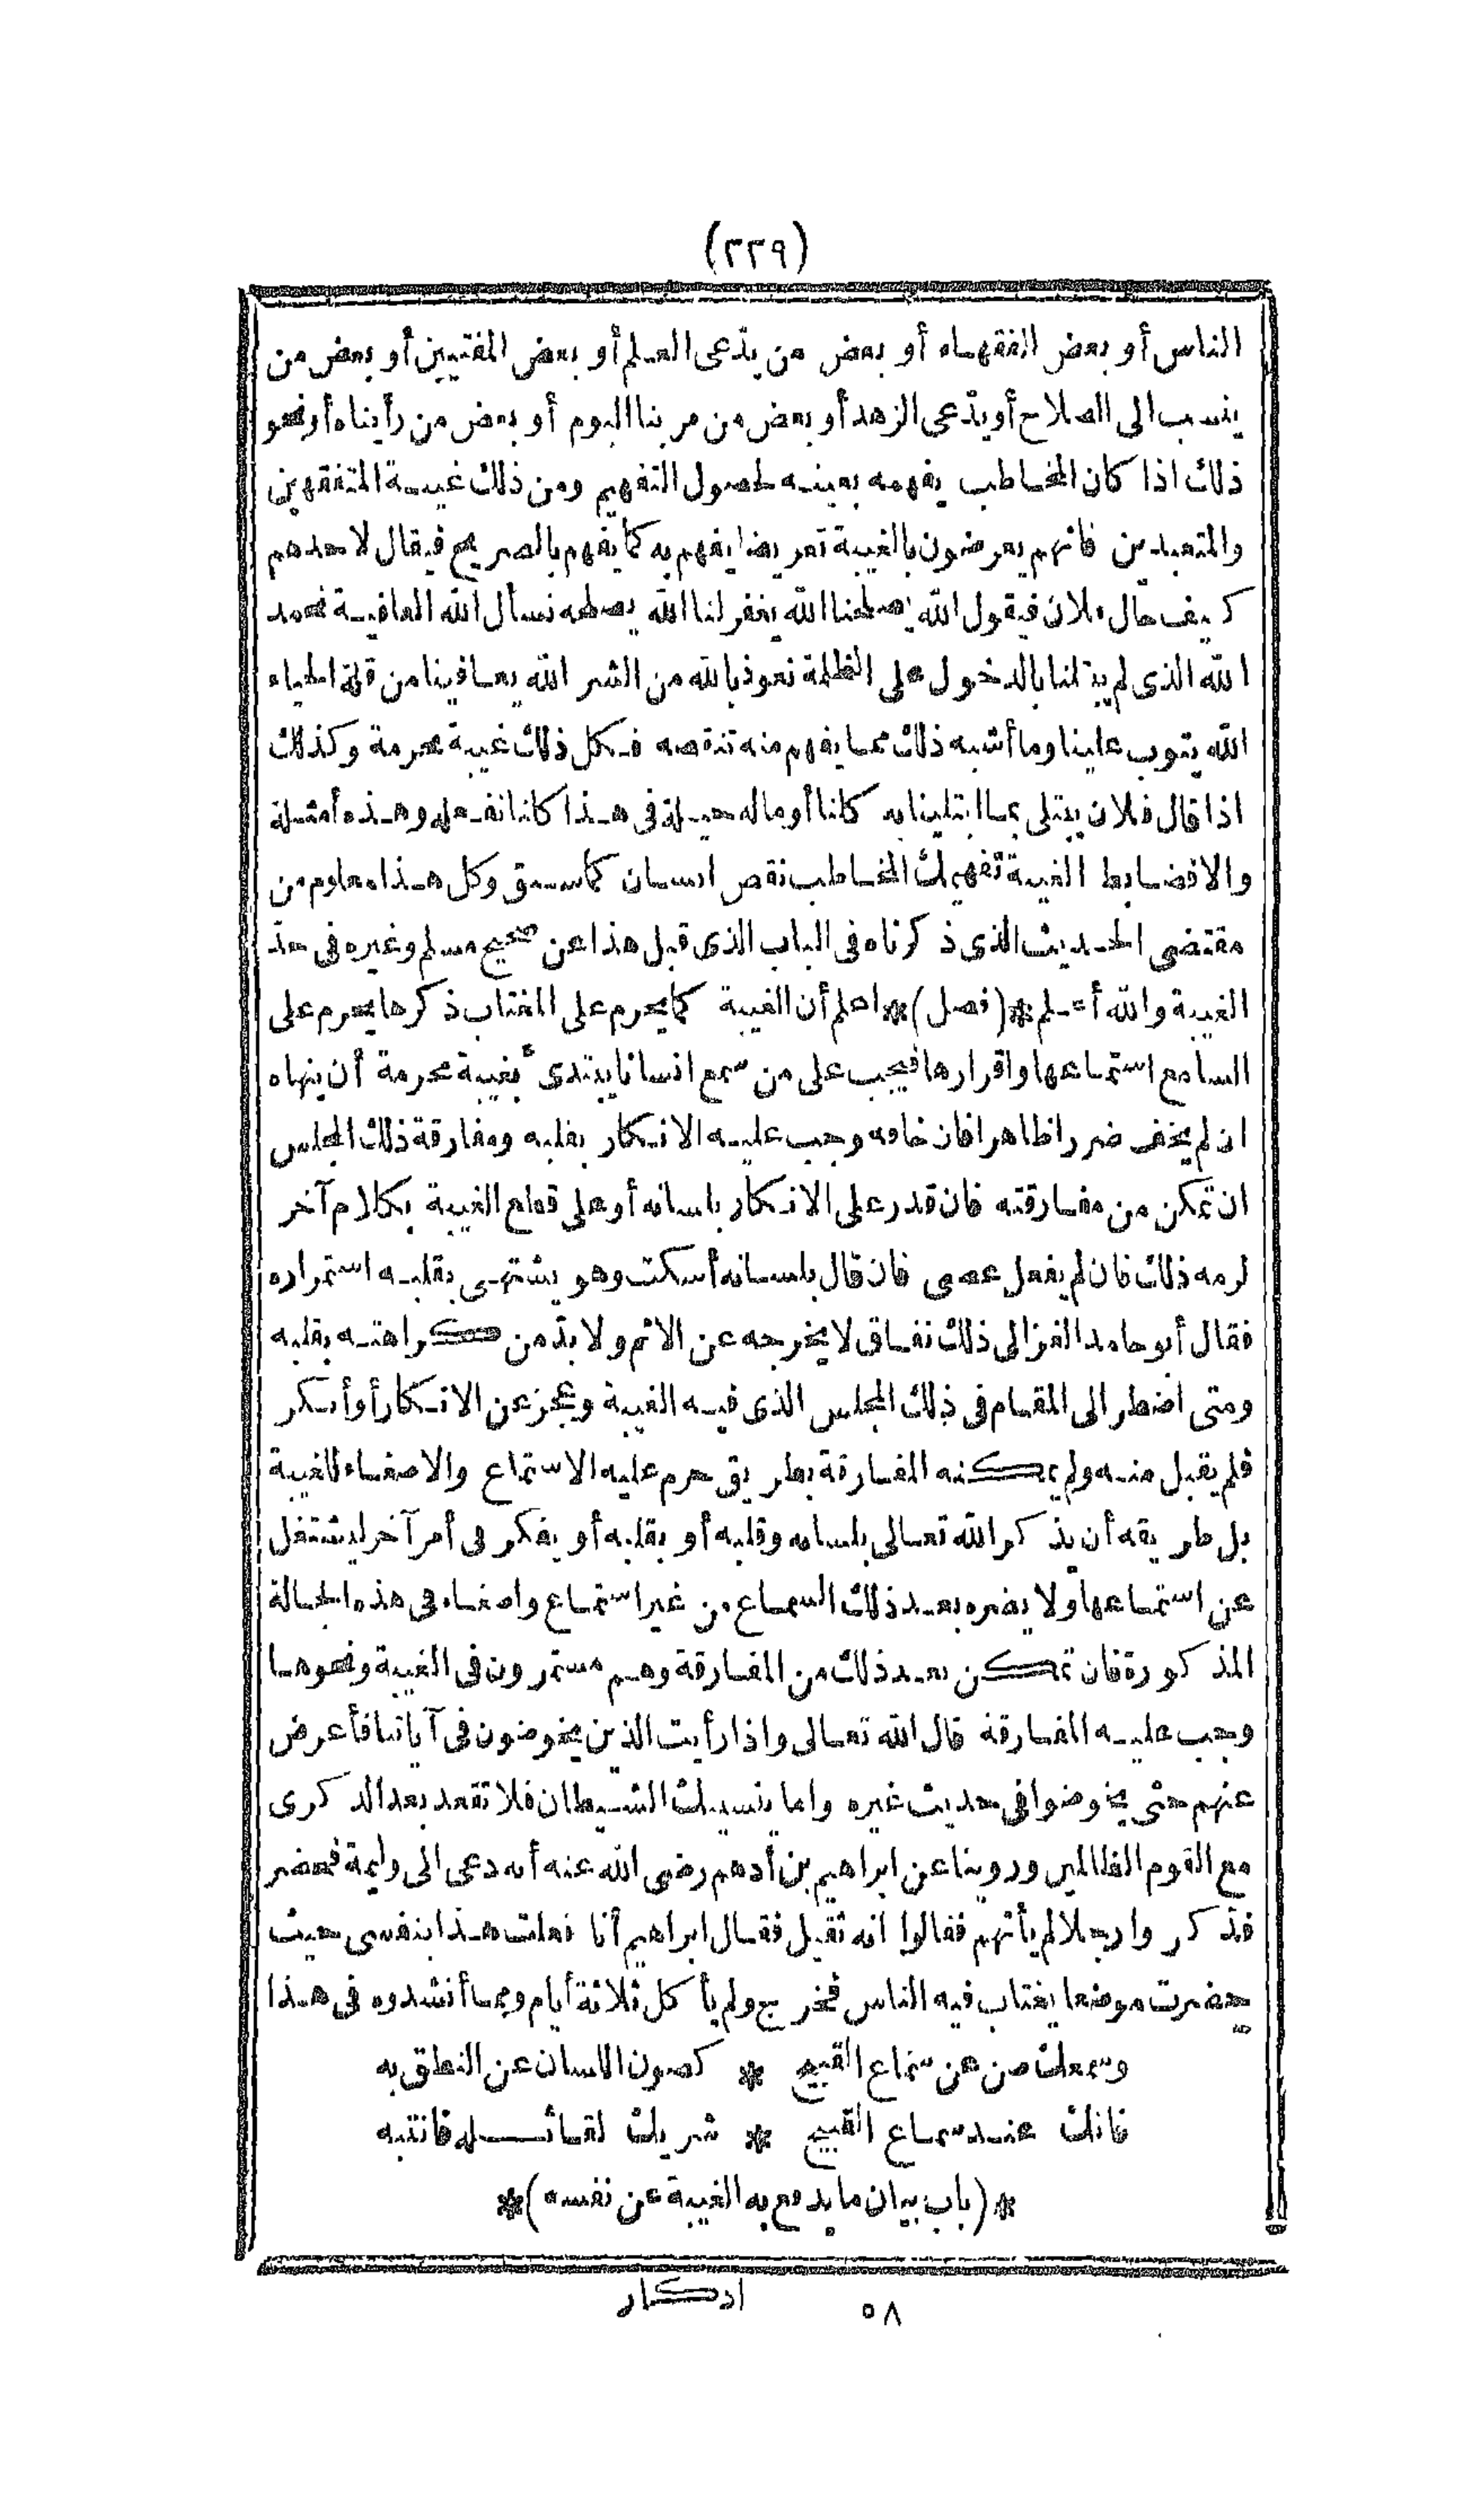 (٢٢٩)
الناس أو بعض الفقهاء أو بعض من يدّعى العلم أو بعض المفتيين أو بعض من
ينسب الى الصلاح أو يدّعى الزهد أو بعض من مر بنا اليوم أو بعض من رأيناه أو نحو
ذلك اذا كان المخاطب يفهمه بعينه لحصول التفهيم ومن ذلك غيبة المتفقهين
والمتعبدين فانهم يعرضون بالغيبة تعريضا يفهم به كما يفهم بالصريح فيقال لاحدهم
كيف حال فلان فيقول الله يصلحنا الله يغفر لنا الله يصلحه نسأل الله العافية نحمد
الله الذى لم يبتلنا بالدخول على الظلمة نعوذ بالله من الشر الله يعافينا من قلة الحياء
الله يتوب علينا وما أشبه ذلك مما يفهم منه تنقصه فكل ذلك غيبة محرمة وكذلك
اذا قال فلان يبتلى بما ابتلينا به كلنا أو ماله حيلة فى هذا كلنا نفعله وهذه أمثلة
والا فضابط الغيبة تفهيمك المخاطب نقص انسان كما سبق وكل هذا معلوم من
مقتضى الحديث الذى ذكرناه فى الباب الذى قبل هذا عن صحيح مسلم وغيره فى حدّ
الغيبة والله أعلم *(فصل)* اعلم أن الغيبة كما يحرم على المغتاب ذكرها يحرم على
السامع استماعها واقرارها فيجب على من سمع انسانا يبتدئ بغيبة محرمة أن ينهاه
ان لم يخف ضررا ظاهرا فان خافه وجب عليه الانكار بقلبه ومفارقة ذلك المجلس
ان تمكن من مفارقته فان قدر على الانكار بلسانه أو على قطع الغيبة بكلام آخر
لزمه ذلك فان لم يفعل عصى فان قال بلسانه أسكت وهو يشتهى بقلبه استمراره
فقال أبو حامد الغزالى ذلك نفاق لا يخرجه عن الاثم ولا بدّ من كراهته بقلبه
ومتى اضطر الى المقام فى ذلك المجلس الذى فيه الغيبة وعجز عن الانكار أو أنكر
فلم يقبل منه ولم يمكنه المفارقة بطريق حرم عليه الاستماع والاصغاء للغيبة
بل طريقه أن يذكر الله تعالى بلسانه وقلبه أو بقلبه أو يفكر فى أمر آخر ليشتغل
عن استماعها ولا يضره بعد ذلك السماع من غير استماع واصغاء فى هذه الحالة
المذكورة فان تمكن بعد ذلك من المفارقة وهم مستمرون فى الغيبة ونحوها
وجب عليه المفارقة قال الله تعالى واذا رأيت الذين يخوضون فى آياتنا فأعرض
عنهم حتى يخوضوا فى حديث غيره واما ينسينك الشيطان فلا تقعد بعد الذكرى
مع القوم الظالمين وروينا عن ابراهيم بن أدهم رضى الله عنه أنه دعى الى وليمة فحضر
فذكروا رجلا لم يأتهم فقالوا انه ثقيل فقال ابراهيم أنا فعلت هذا بنفسى حيث
حضرت موضعا يغتاب فيه الناس فخرج ولم يأكل ثلاثة أيام ومما أنشدوه فى هذا
وسمعك صن عن سماع القبيح * كصون اللسان عن النطق به
فانك عند سماع القبيح * شريك لقائله فانتبه
*(باب بيان ما يدفع به الغيبة عن نفسه)*
٥٨ اذكار